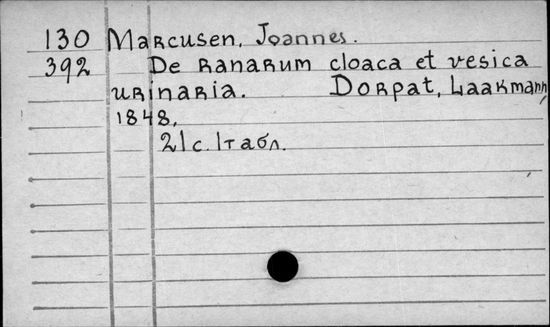 130 Marcusen, Joannes.
392 De ranarum cloaca et vesica
urinaria. Dorpat, Laakmann,
1848,
21 с. 1 табл.